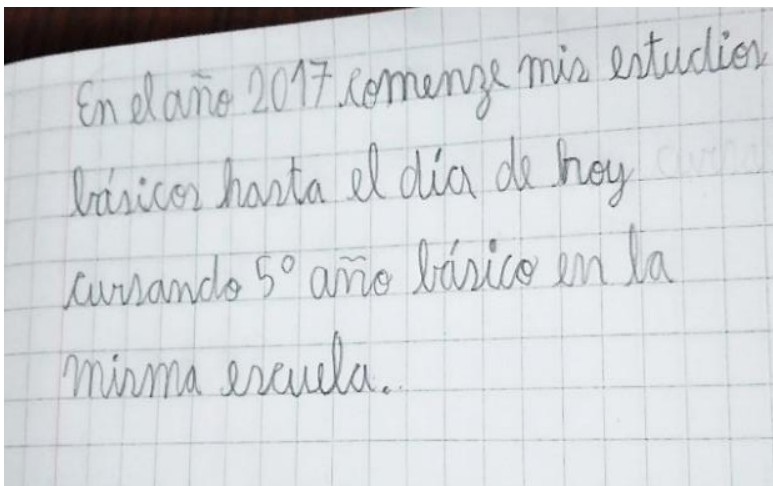 En el año 2017 comenze mis estudios
básicos hasta el día de hoy
cursando 5º año básico en la
misma escuela.